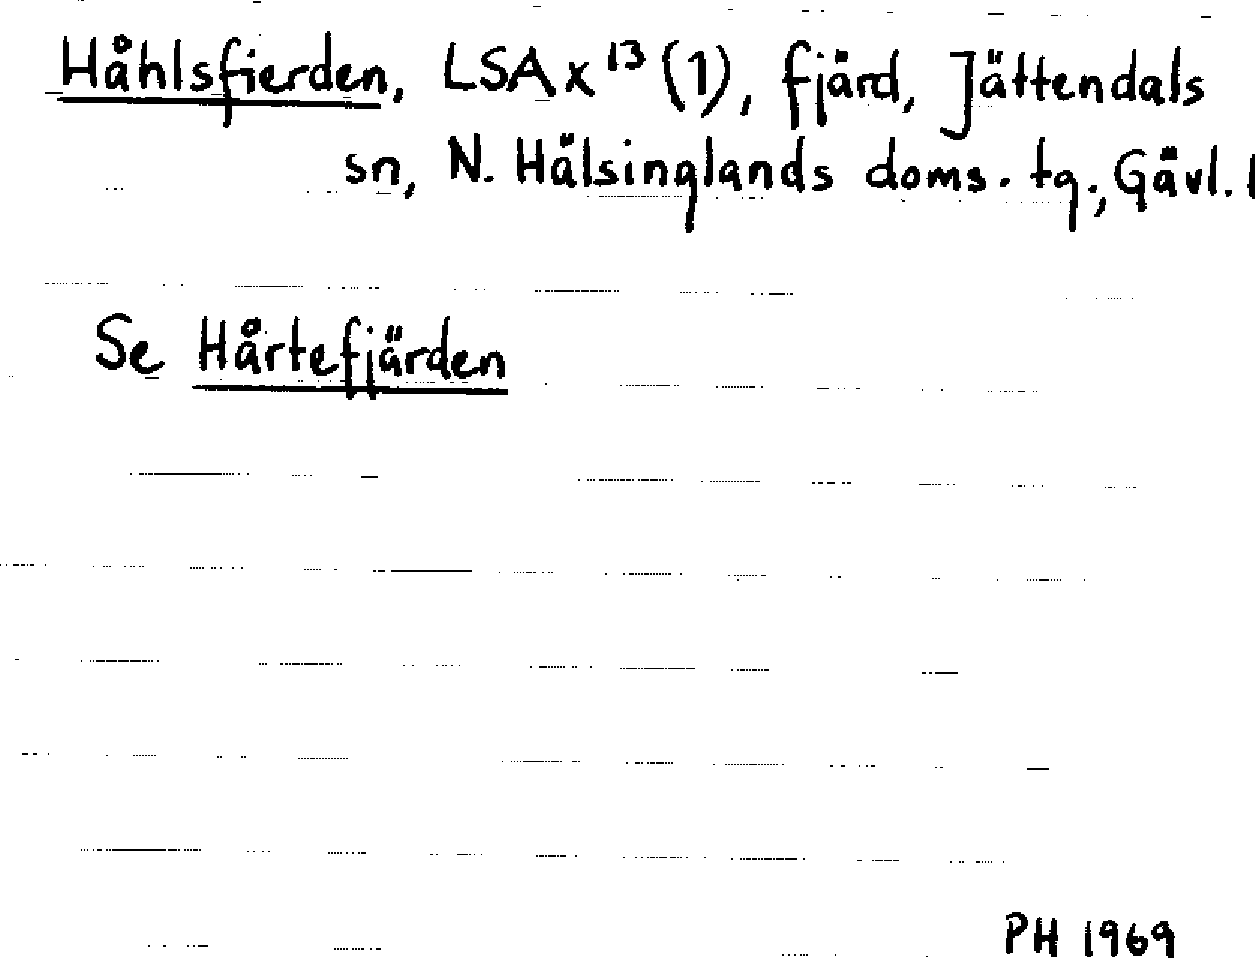 Håhlsfierden, LSA x¹³ (1), fjärd, Jättendals
sn, N. Hälsinglands doms. tg., Gävl. l
Se Hårtefjärden
PH 1969